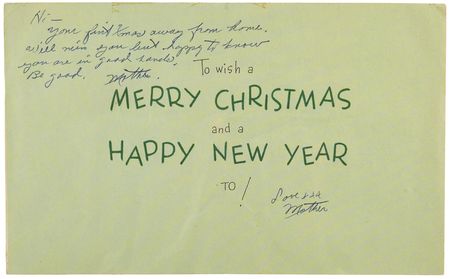 Hi —
your first Xmas away from home.
Will miss you but happy to know
you are in good hands.
Be good. Mother.
To wish a
MERRY CHRISTMAS
and a
HAPPY NEW YEAR
TO!
Love
Mother